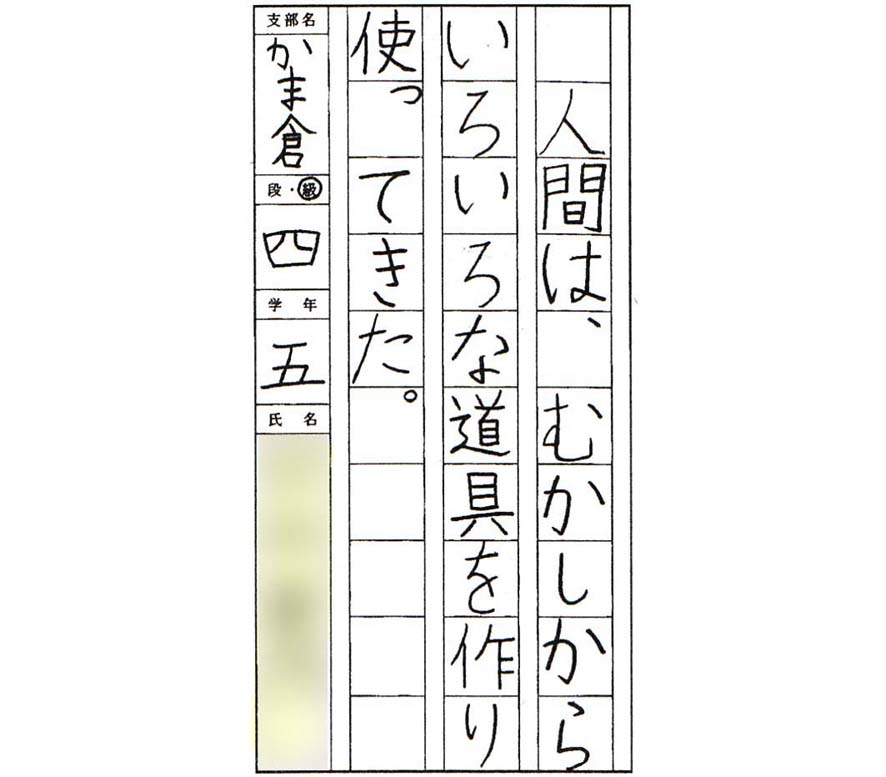 人間は、むかしから
いろいろな道具を作り
使ってきた。
支部名
かま倉
段・級
四
学年
五
氏名